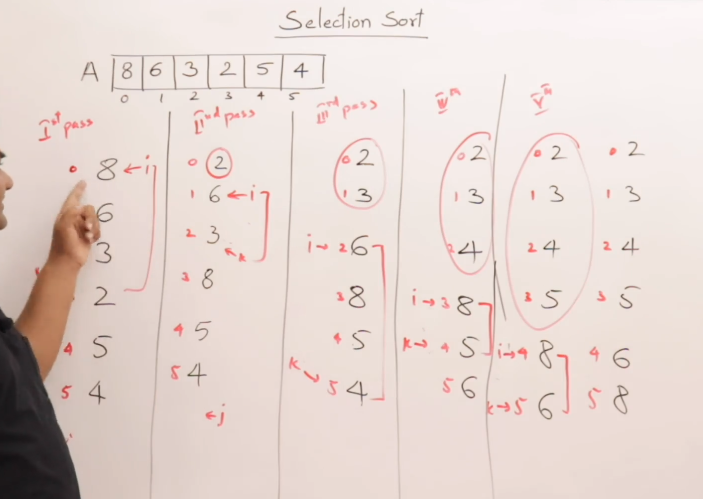 Selection Sort
A 8 6 3 2 5 4
0 1 2 3 4 5
Iˢᵗ pass
0 8 ← i
6
3
2
4 5
5 4
IIⁿᵈ pass
0 2
1 6 ← i
2 3
← k
3 8
4 5
5 4
← j
IIIʳᵈ pass
0 2
1 3
i → 2 6
3 8
4 5
k → 5 4
IVᵗʰ
0 2
1 3
2 4
i → 3 8
k → 4 5
5 6
Vᵗʰ
0 2
1 3
2 4
3 5
i → 4 8
k → 5 6
0 2
1 3
2 4
3 5
4 6
5 8